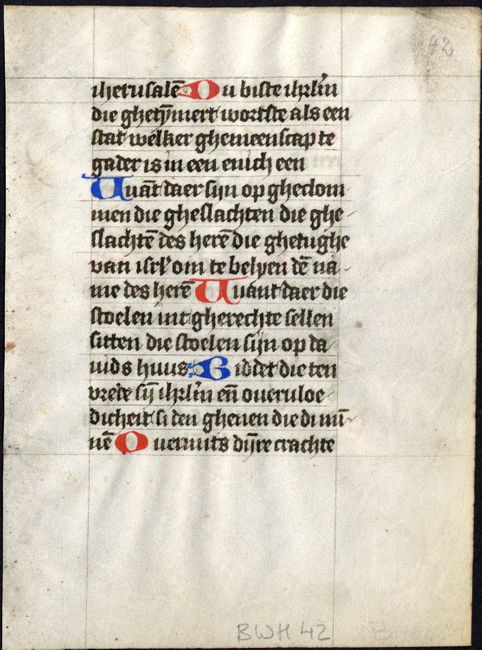 42
iherusalē Ou biste ihrl̄m
die ghetȳmert wortste als een
stat welker ghemeenscap te
gader is in een enich een
Want daer sijn op gheclom
men die gheslachten die ghe
slachtē des herē die ghetughe
van isrl̄ om te belyen dē na
me des herē Want daer die
stoelen int gherechte sellen
sitten die stoelen sijn op da
uids huus Biddet die ten
vrede sij̄ ihrl̄m eñ ouervloe
dicheit si den ghenen die di mī
nē Ouermits dijre crachte
BWH 42